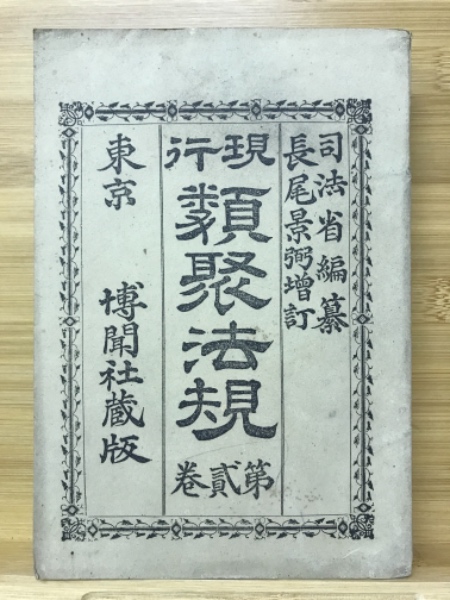 司法省編纂
長尾景弼増訂
現行
類聚法規
第貳卷
東京 博聞社蔵版